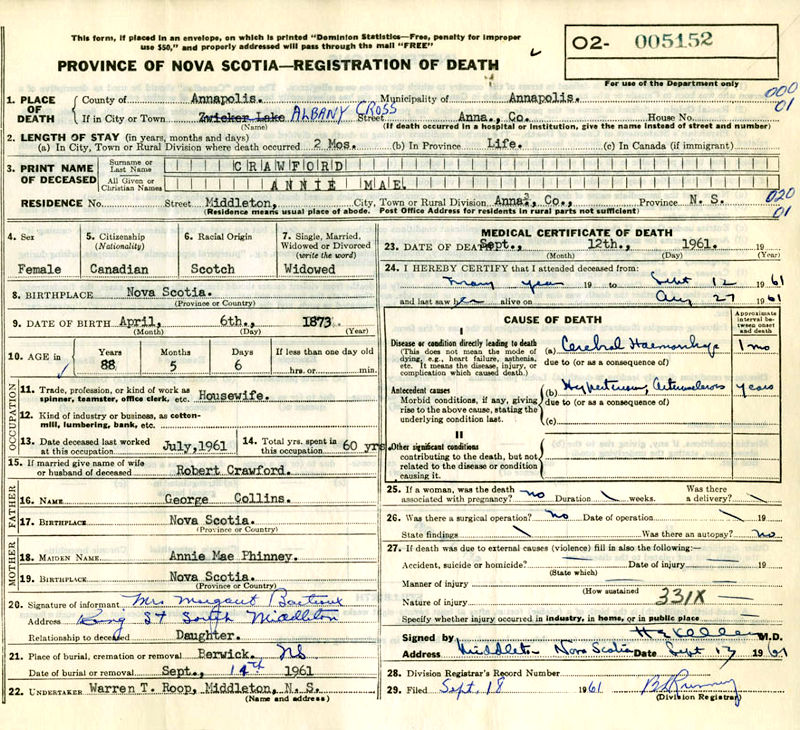 This form, if placed in an envelope, on which is printed "Dominion Statistics—Free, penalty for improper
use $50," and properly addressed will pass through the mail "FREE"
O2- 005152
PROVINCE OF NOVA SCOTIA—REGISTRATION OF DEATH
For use of the Department only
000
01
1. PLACE OF DEATH
County of Annapolis. Municipality of Annapolis.
If in City or Town Zwicker Lake ALBANY CROSS Street Anna., Co. House No.
(Name) (If death occurred in a hospital or institution, give the name instead of street and number)
2. LENGTH OF STAY (in years, months and days)
(a) In City, Town or Rural Division where death occurred 2 Mos. (b) In Province Life. (c) In Canada (if immigrant)
3. PRINT NAME OF DECEASED
Surname or Last Name CRAWFORD
All Given or Christian Names ANNIE MAE.
RESIDENCE No. Street Middleton, City, Town or Rural Division Anna., Co., Province N. S.
020
01
(Residence means usual place of abode. Post Office Address for residents in rural parts not sufficient)
4. Sex
Female
5. Citizenship
(Nationality)
Canadian
6. Racial Origin
Scotch
7. Single, Married, Widowed or Divorced
(write the word)
Widowed
8. BIRTHPLACE Nova Scotia.
(Province or Country)
9. DATE OF BIRTH April, 6th., 1873.
(Month) (Day) (Year)
10. AGE in
Years Months Days If less than one day old
88 5 6 hrs. or min.
OCCUPATION
11. Trade, profession, or kind of work as
spinner, teamster, office clerk, etc. Housewife.
12. Kind of industry or business, as cotton-
mill, lumbering, bank, etc.
13. Date deceased last worked
at this occupation July,1961
14. Total yrs. spent in
this occupation 60 yrs.
15. If married give name of wife
or husband of deceased Robert Crawford.
FATHER
16. NAME George Collins.
17. BIRTHPLACE Nova Scotia.
(Province or Country)
MOTHER
18. MAIDEN NAME Annie Mae Phinney.
19. BIRTHPLACE Nova Scotia.
(Province or Country)
20. Signature of informant Mrs Margaret
Address St South Middleton
Relationship to deceased Daughter.
21. Place of burial, cremation or removal Berwick. NS
Date of burial or removal Sept., 14th 1961
22. UNDERTAKER Warren T. Roop, Middleton, N. S.
(Name and address)
MEDICAL CERTIFICATE OF DEATH
23. DATE OF DEATH Sept., 12th., 1961. 19
(Month) (Day) (Year)
24. I HEREBY CERTIFY that I attended deceased from:
many year 19 to Sept 12 1961
and last saw her alive on Aug 27 1961
CAUSE OF DEATH
Approximate interval between onset and death
I
Disease or condition directly leading to death
(This does not mean the mode of
dying, e.g., heart failure, asthenia,
etc. It means the disease, injury, or
complication which caused death.)
(a) Cerebral Haemorrhage 1 mo
due to (or as a consequence of)
Antecedent causes
Morbid conditions, if any, giving
rise to the above cause, stating the
underlying condition last.
(b) Hypertension, Arteriosclerosis years
due to (or as a consequence of)
(c)
II
Other significant conditions
contributing to the death, but not
related to the disease or condition
causing it.
25. If a woman, was the death
associated with pregnancy? no Duration weeks. Was there
a delivery?
26. Was there a surgical operation? no Date of operation 19
State findings Was there an autopsy? no
27. If death was due to external causes (violence) fill in also the following:—
Accident, suicide or homicide? Date of injury 19
(State which)
Manner of injury
(How sustained
Nature of injury 331X
Specify whether injury occurred in industry, in home, or in public place
Signed by M.D.
Address Middleton Nova Scotia Date Sept 13 1961
28. Division Registrar's Record Number
29. Filed Sept. 18 1961
(Division Registrar)